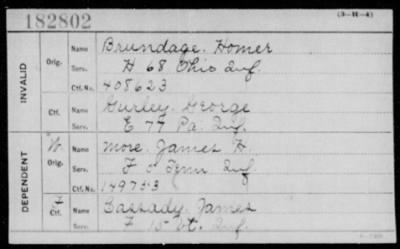 182802
(3-11-A)
INVALID
Orig.
Name Brundage. Homer
Serv. H 68 Ohio Inf.
Ctf. No. 408623
Ctf.
Name Gurley. George
Serv. E 77 Pa. Inf.
DEPENDENT
W.
Orig.
Name More. James H.
Serv. F 5 Tenn Inf
Ctf. No.
Ctf.
Name Cassady. James
Serv. F 15 Inf.